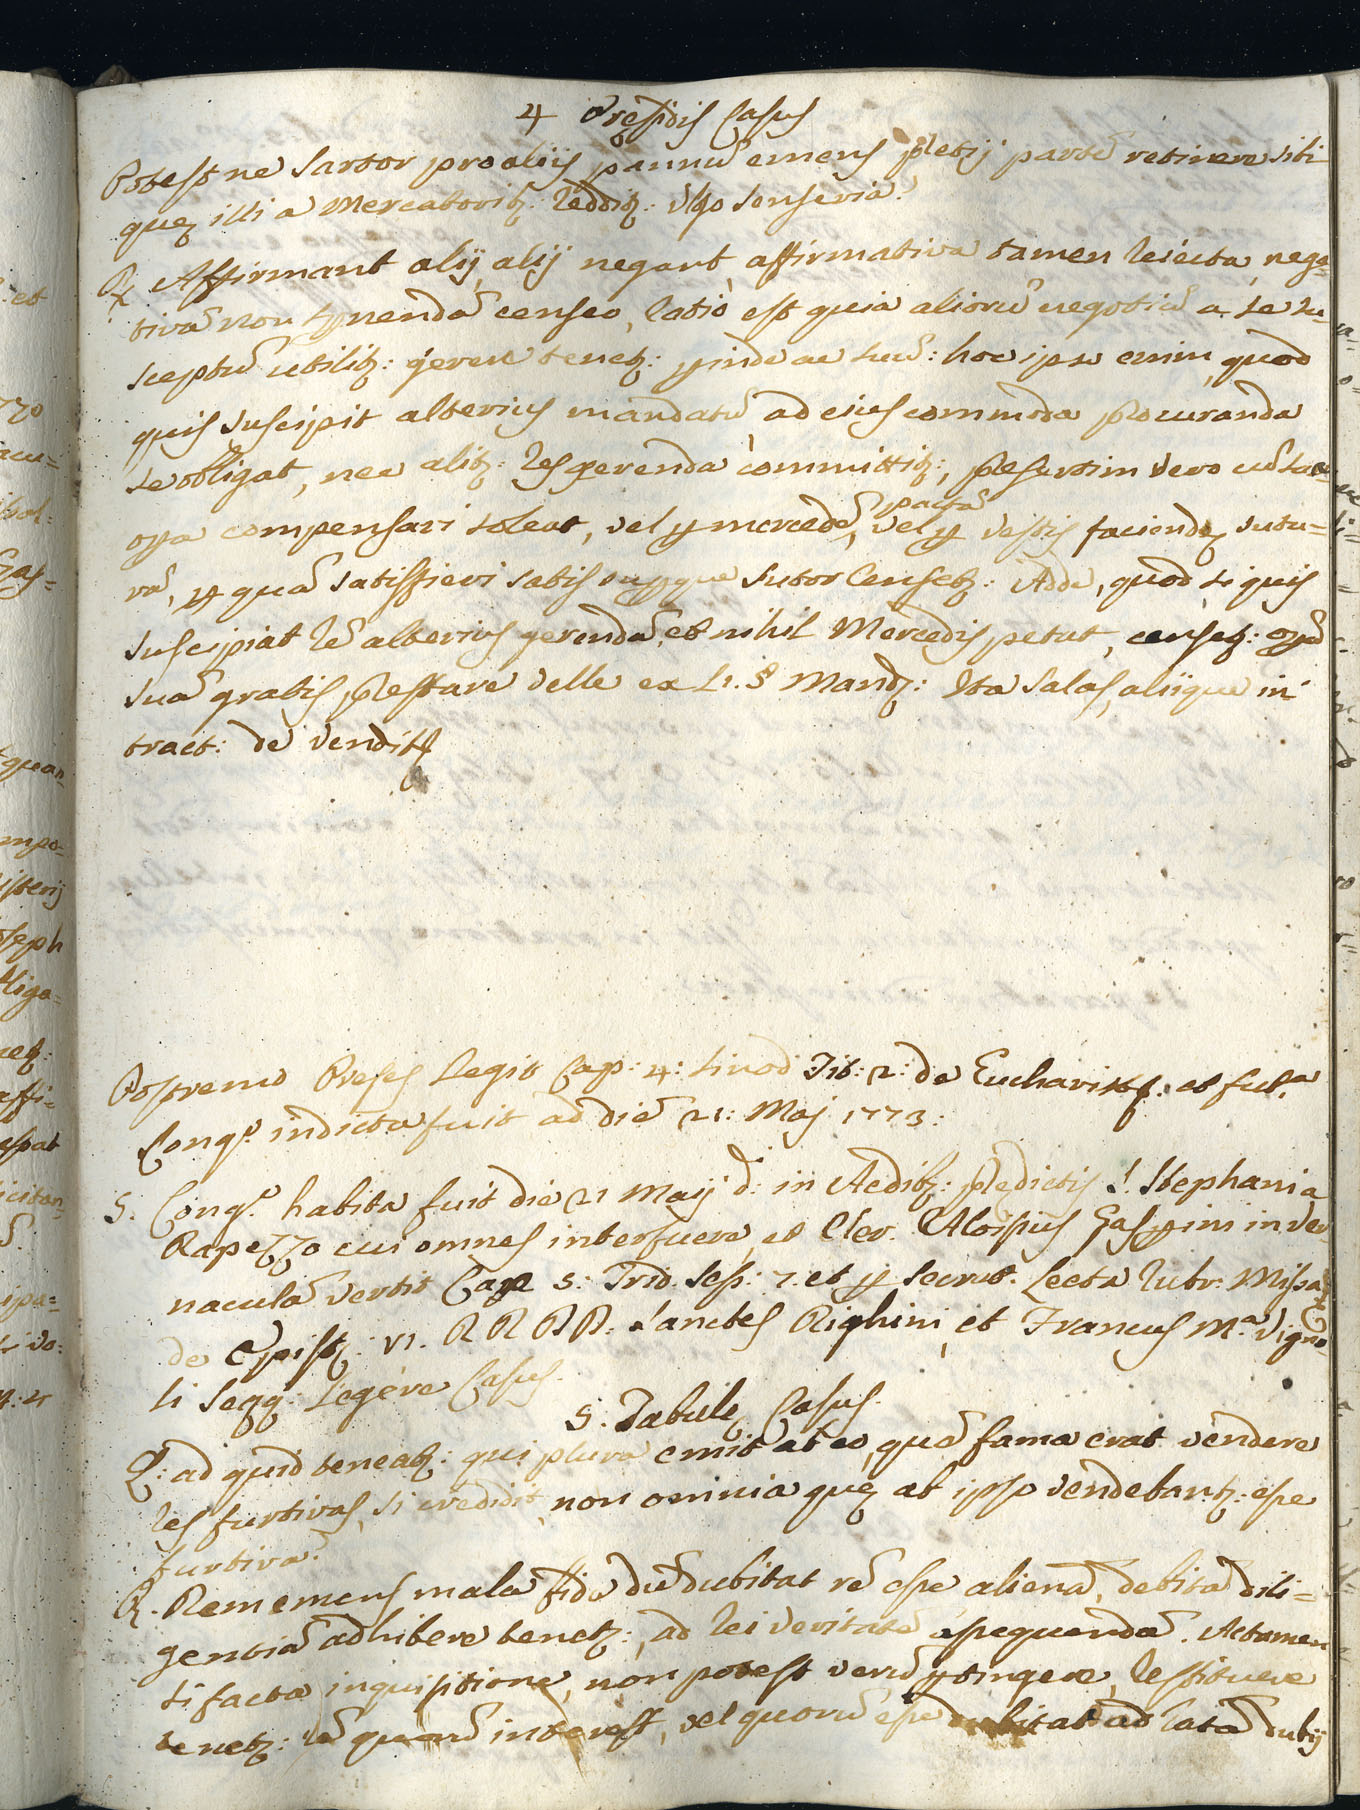 4 Pręsidis Casus
Potest ne Sartor pro aliis pannũ emens p̃letij partẽ retinere sibi
quę illi a Mercatorib₉: Redditʒ: vlgo Senseria?
R Affirmant alij, alij negant, affirmativa tamen Reiecta, nega=
tivã non tenendã censeo, Ratio est quia aliorũ negotiũ a se su=
sceptũ utilitʒ: gerere tenetʒ: pinde ac suũ: hoc ipso enim, quod
quis suscipit alterius mandatũ, ad eius commoda p̃curanda
se obligat, nec alitʒ: Res gerenda committitʒ:, p̃sertim vero cũ sua
opa compensari soleat, vel p mercedẽ, vel p pactã vestis faciendę sutu=
rã, p quã satisfieri satis supque Sutor Censetʒ: Adde, quod si quis
suscipiat Rẽ alterius gerendã, et nihil Mercedis petat, censetʒ: opã
suã gratis p̃stare velle ex L. 1. § Mandʒ: Ita Salas, aliique in
tract: de vendit
Postremo Preses Legit Cap: 4: Sinod Tit: 2: de Eucharist: et fut.a
Congr. indicta fuit ad diẽ 21: Maj 1773:
5. Congr. habita fuit die 21 Maij d: in Aedib₉: p̃dictis S. Stephani a
Rapezzo cui omnes interfuere, et Cler. Aloisius Gasprini in ver
naculã vertit Cap 5: Trid. Sess: 7. et p scrut. Lecta Rubr: Missal
de Epistʒ: VI. RR DD. Sanctes Righini, et Francus M.a Vigno
li seqq: Legere Casus.
5. Tabulę Casus.
Q: ad quid teneatʒ: qui plura emit ab eo, quẽ fama erat vendere
Res furtivas, si credidit, non omnia quę ab ipso vendebantʒ: esse
furtiva?
R. Rem emens mala fide dũ dubitat rẽ esse alienã, debitã dili=
gentiã adhibere tenetʒ:, ad Rei veritatẽ assequendã. Attamen
si facta inquisitione, non potest verũ ptingere, Restituere
tenetʒ: quorũ interest, vel quorũ esse dubitat ad Ratã dubij